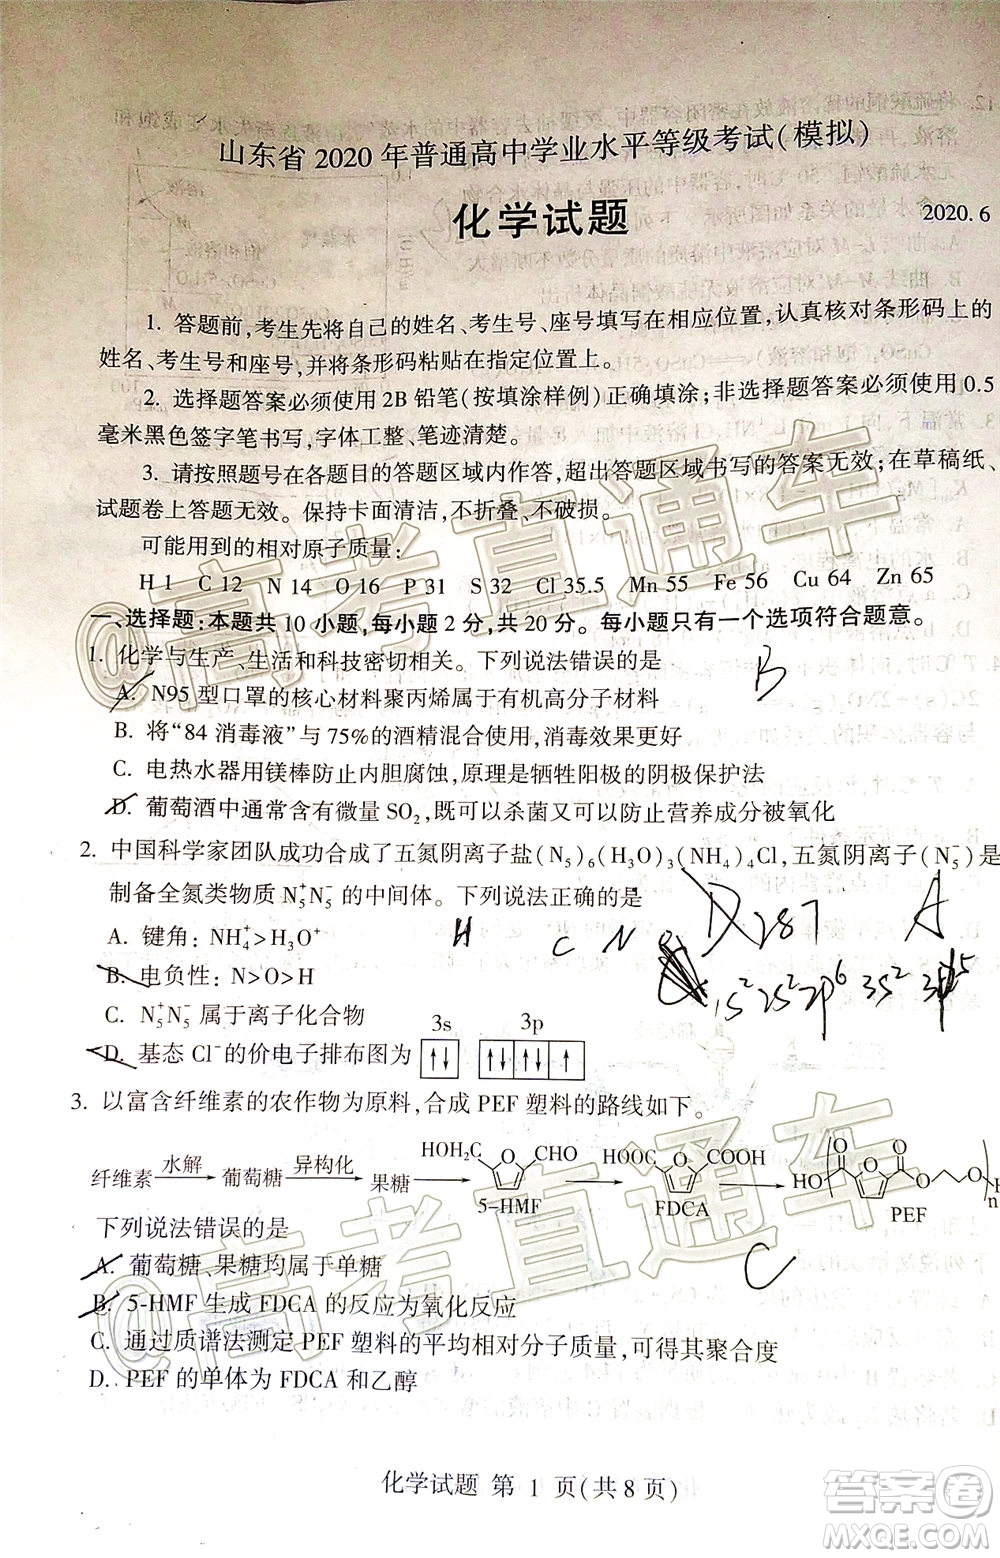 山东省 2020 年普通高中学业水平等级考试(模拟)
化学试题
2020.6
1. 答题前,考生先将自己的姓名、考生号、座号填写在相应位置,认真核对条形码上的
姓名、考生号和座号,并将条形码粘贴在指定位置上。
2. 选择题答案必须使用 2B 铅笔(按填涂样例)正确填涂;非选择题答案必须使用 0.5
毫米黑色签字笔书写,字体工整、笔迹清楚。
3. 请按照题号在各题目的答题区域内作答,超出答题区域书写的答案无效;在草稿纸、
试题卷上答题无效。保持卡面清洁,不折叠、不破损。
可能用到的相对原子质量:
H 1 C 12 N 14 O 16 P 31 S 32 Cl 35.5 Mn 55 Fe 56 Cu 64 Zn 65
一、选择题:本题共 10 小题,每小题 2 分,共 20 分。每小题只有一个选项符合题意。
1. 化学与生产、生活和科技密切相关。下列说法错误的是
B
A. N95 型口罩的核心材料聚丙烯属于有机高分子材料
B. 将“84 消毒液”与 75%的酒精混合使用,消毒效果更好
C. 电热水器用镁棒防止内胆腐蚀,原理是牺牲阳极的阴极保护法
D. 葡萄酒中通常含有微量 SO₂,既可以杀菌又可以防止营养成分被氧化
2. 中国科学家团队成功合成了五氮阴离子盐(N₅)₆(H₃O)₃(NH₄)₄Cl,五氮阴离子(N₅⁻)是
制备全氮类物质 N₅⁺N₅⁻ 的中间体。下列说法正确的是
D 287 A
A. 键角:NH₄⁺>H₃O⁺
H C N
B. 电负性:N>O>H
1s² 2s² 2p⁶ 3s² 3p⁵
C. N₅⁺N₅⁻ 属于离子化合物
3s 3p
D. 基态 Cl⁻的价电子排布图为 ↑↓ ↑↓ ↑↓ ↑↓
3. 以富含纤维素的农作物为原料,合成 PEF 塑料的路线如下。
纤维素 水解 葡萄糖 异构化 果糖 HOH₂C O CHO 5-HMF HOOC O COOH FDCA HO O O O O O H n PEF
下列说法错误的是
C
A. 葡萄糖、果糖均属于单糖
B. 5-HMF 生成 FDCA 的反应为氧化反应
C. 通过质谱法测定 PEF 塑料的平均相对分子质量,可得其聚合度
D. PEF 的单体为 FDCA 和乙醇
化学试题 第 1 页(共 8 页)
@高考直通车
@高考直通车
答案圈
MXQE.COM